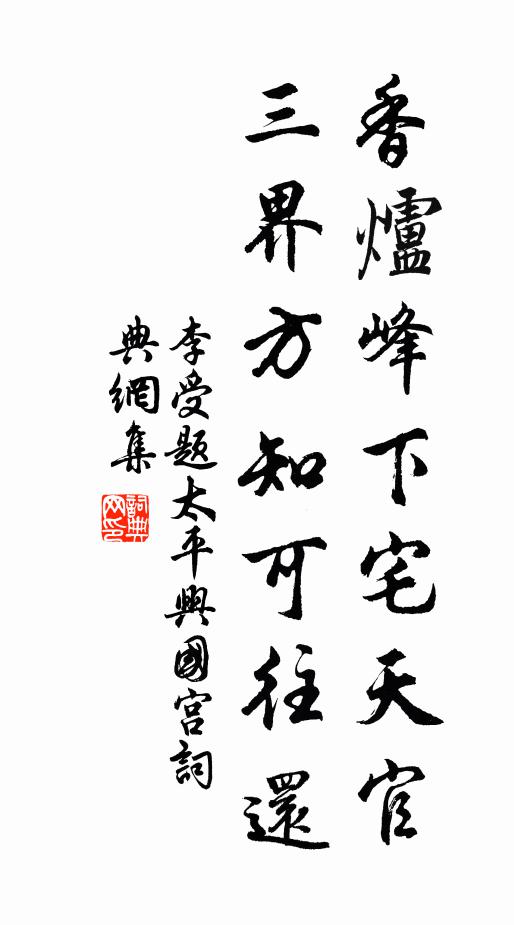 香爐峰下宅天官
三界方知可往還
李受題太平興國宮詞
典網集
詞典网印